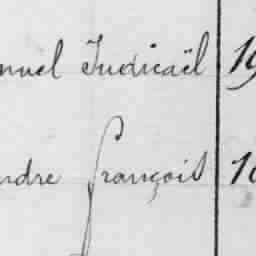 nuel Judicaël 19
ndre françois 10